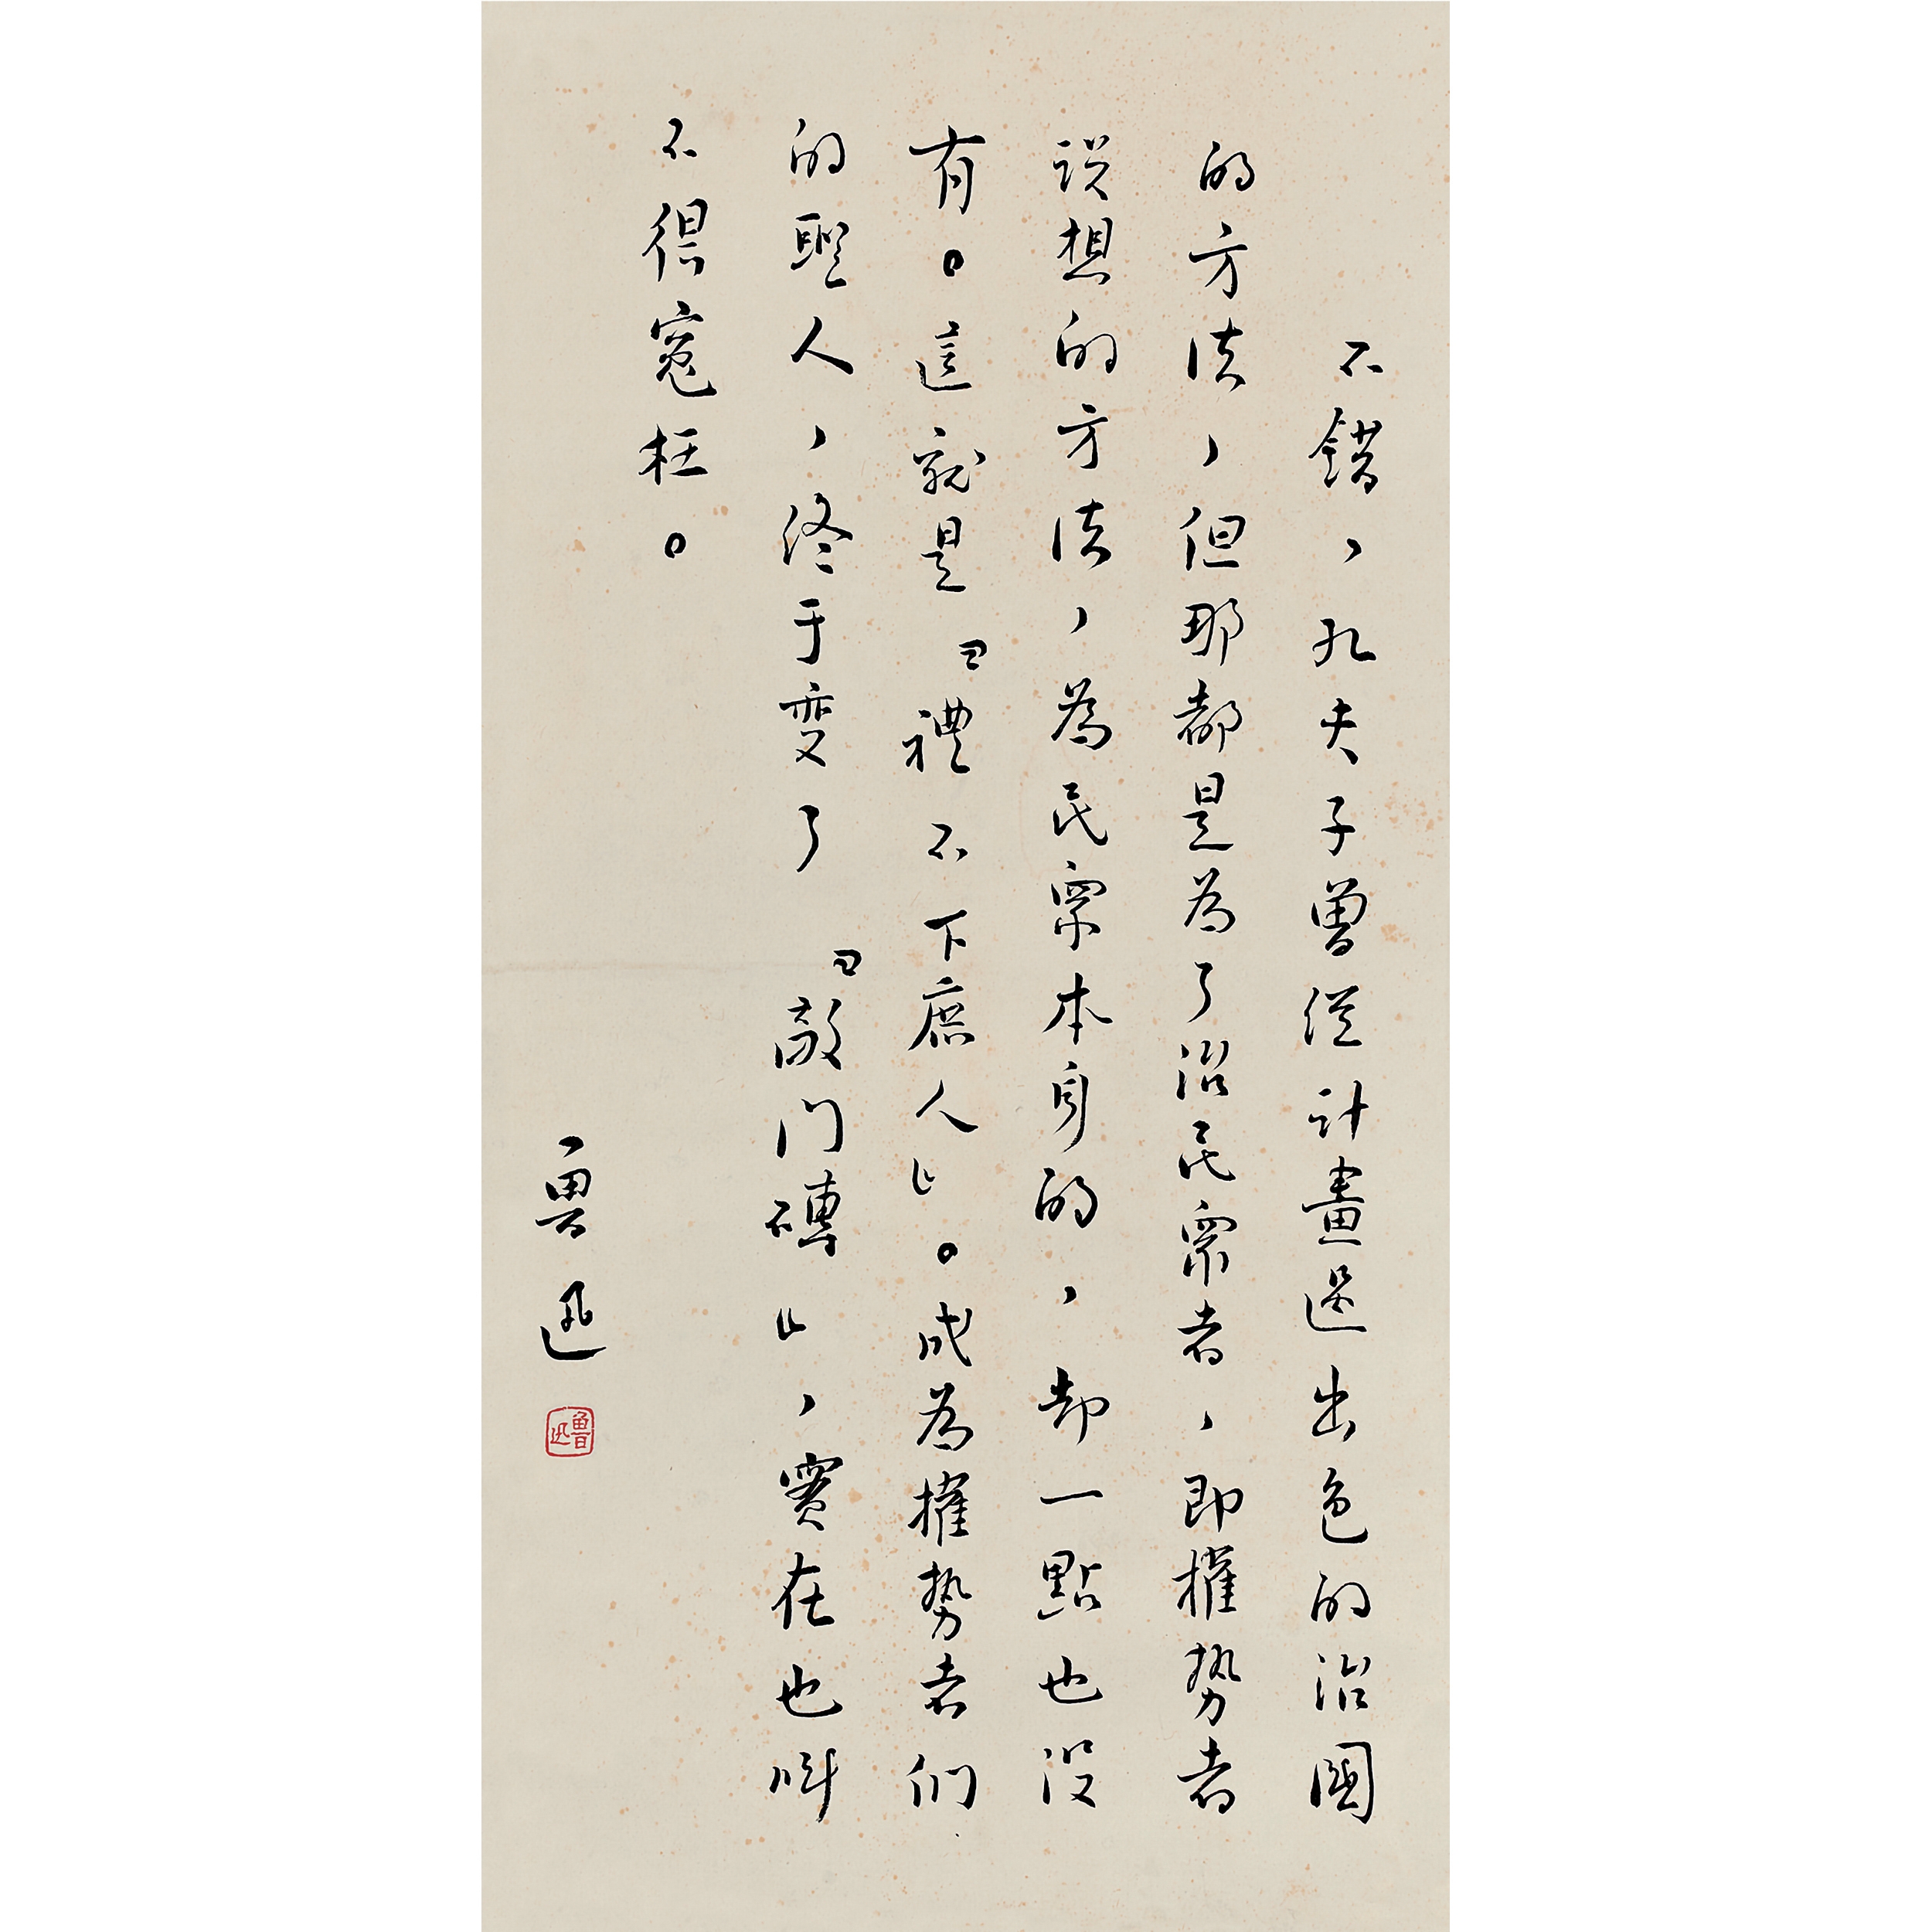 不錯，孔夫子曾經計畫過出色的治國
的方法，但那都是為了治民眾者，即權勢者
設想的方法，為民眾本身的，却一點也没
有。這就是『禮不下庶人』。成為權勢者们
的聖人，終于变了『敲门磚』，實在也叫
不得寃枉。
魯迅
魯迅